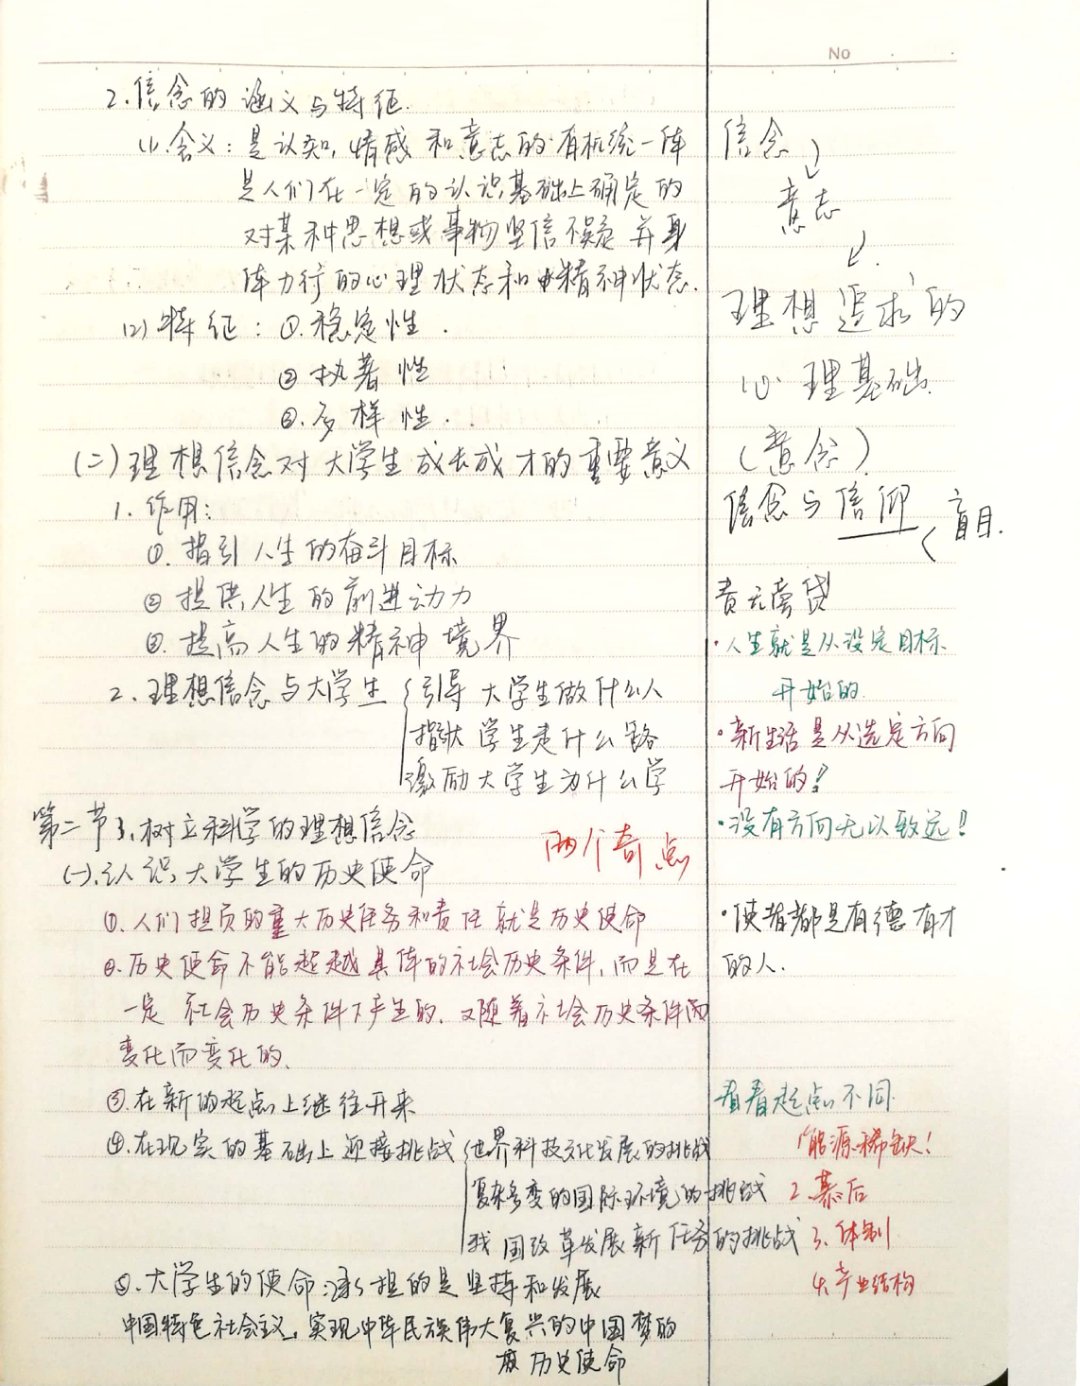 No
2.信念的涵义与特征.
(1).含义:是认知,情感和意志的有机统一体
是人们在一定的认识基础上确定的
对某种思想或事物坚信不疑并身
体力行的心理状态和精神状态.
(2)特征:①.稳定性.
②执著性
③.多样性.
(二)理想信念对大学生成长成才的重要意义
1.作用:
①.指引人生的奋斗目标
②提供人生的前进动力
③.提高人生的精神境界
2.理想信念与大学生{引导大学生做什么人
指引大学生走什么路
激励大学生为什么学
第二节 树立科学的理想信念
(一).认识大学生的历史使命
两个奇点
①.人们担负的重大历史任务和责任就是历史使命
②.历史使命不能超越具体的社会历史条件,而是在
一定社会历史条件下产生的.又随着社会历史条件而
变化而变化的.
③.在新的起点上继往开来
④.在现实的基础上迎接挑战{世界科技文化发展的挑战
复杂多变的国际环境的挑战
我国改革发展新任务的挑战
⑤.大学生的使命:承担的是坚持和发展
中国特色社会主义,实现中华民族伟大复兴的中国梦的
历史使命
信念
意志
理想追求的
心理基础.
(意念)
信念与信仰<盲目.
责无旁贷
·人生就是从设定目标
开始的.
·新生活是从选定方向
开始的!
·没有方向无以致远!
·使者都是有德有才
的人.
看看起点不同
1能源稀缺!
2.幕后
3.体制
4.产业结构